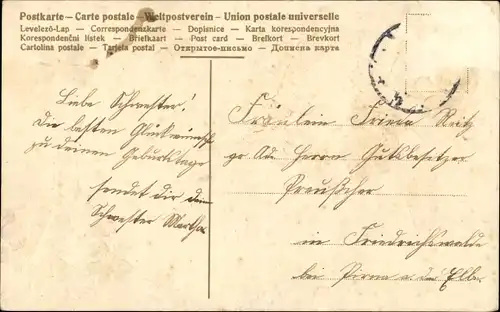 Postkarte — Carte postale — Weltpostverein — Union postale universelle
Levelező-Lap — Correspondenzkarte — Dopisnice — Karta korespondencyjna
Korespondenční lístek — Briefkaart — Post card — Brefkort — Brevkort
Cartolina postale — Tarjeta postal — Открытое письмо — Дописна карта
Liebe Schwester!
Die besten Glückwünsche
zu deinem Geburtstage
sendet dir deine
Schwester Martha
Fräulein Frieda
Adr Herrn Gutsbesitzer
Preußcher
in Friedrichswalde
bei Pirna a. d. Elbe